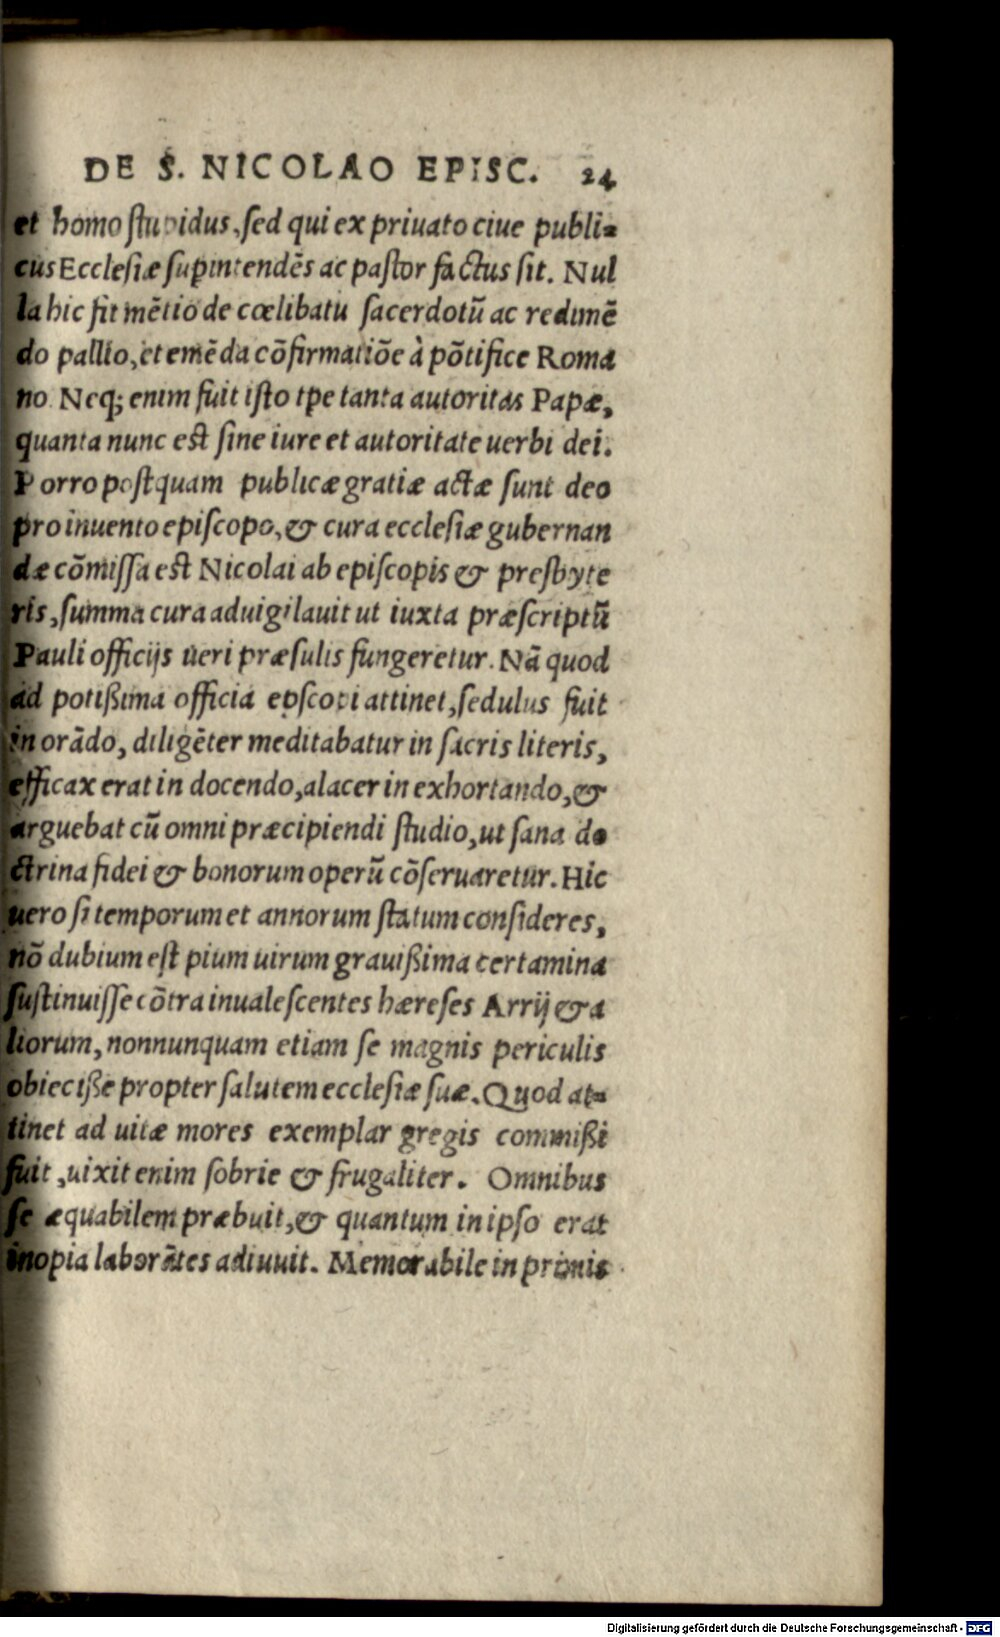 DE S. NICOLAO EPISC. 24
et homo stupidus, sed qui ex priuato ciue publi-
cus Ecclesiæ supintendēs ac pastor factus sit. Nul
la hic fit mētio de cœlibatu sacerdotū ac redimē
do pallio, et emēda cōfirmatiōe à pōtifice Roma
no. Neq; enim fuit isto tpe tanta autoritas Papæ,
quanta nunc est sine iure et autoritate uerbi dei.
Porro postquam publicæ gratiæ actæ sunt deo
pro inuento episcopo, & cura ecclesiæ gubernan
dæ cōmissa est Nicolai ab episcopis & presbyte
ris, summa cura aduigilauit ut iuxta præscriptū
Pauli officijs ueri præsulis fungeretur. Nā quod
ad potißima officia epscopi attinet, sedulus fuit
in orādo, diligēter meditabatur in sacris literis,
efficax erat in docendo, alacer in exhortando, &
arguebat cū omni præcipiendi studio, ut sana do
ctrina fidei & bonorum operū cōseruaretur. Hic
uero si temporum et annorum statum consideres,
nō dubium est pium uirum grauißima certamina
sustinuisse cōtra inualescentes hæreses Arrij & a
liorum, nonnunquam etiam se magnis periculis
obieciße propter salutem ecclesiæ suæ. Quod at-
tinet ad uitæ mores exemplar gregis commißi
fuit, uixit enim sobrie & frugaliter. Omnibus
se æquabilem præbuit, & quantum in ipso erat
inopia laborātes adiuuit. Memorabile in primis
Digitalisierung gefördert durch die Deutsche Forschungsgemeinschaft - DFG